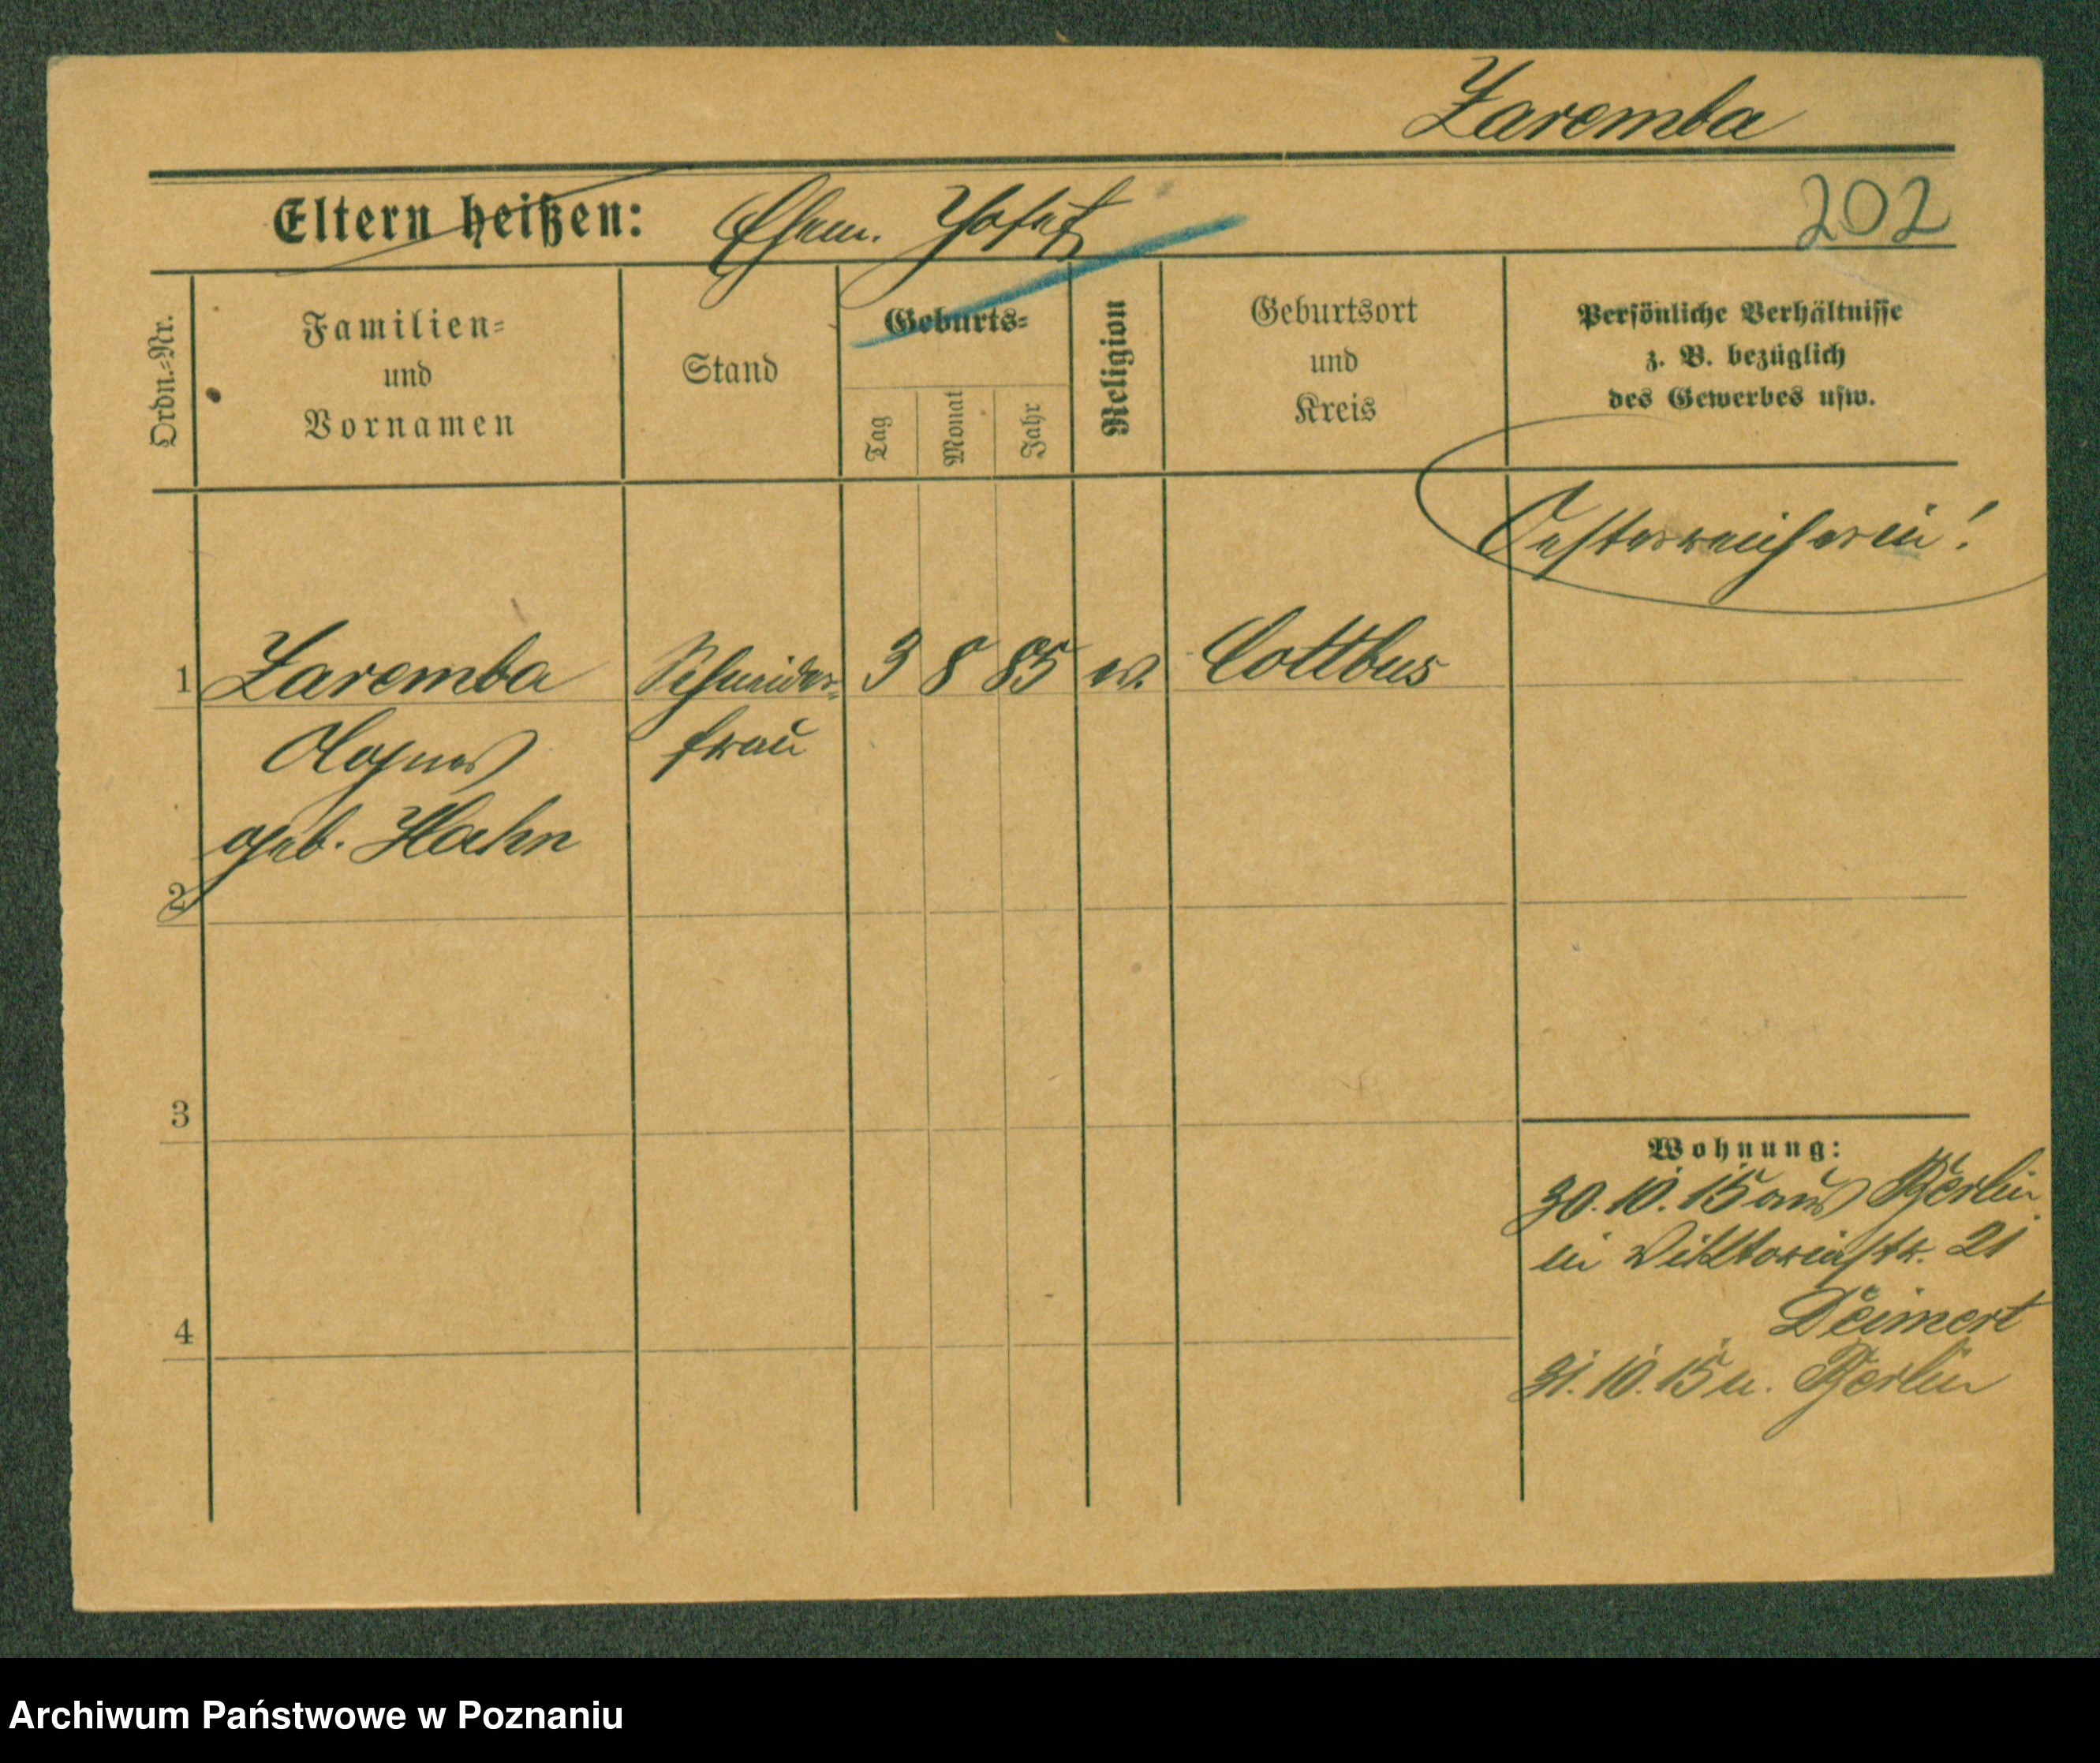 Zaremba
Eltern heißen: Ehem. Josef
202
Ordn.-Nr.
Familien-
und
Vornamen
Stand
Geburts-
Tag
Monat
Jahr
Religion
Geburtsort
und
Kreis
Persönliche Verhältnisse
z. B. bezüglich
des Gewerbes usw.
Oesterreicherin!
1 Zaremba Schneider- 3 8 85 ev. Cottbus
Agnes frau
geb. Hahn
2
3
Wohnung:
30.10.15 aus Berlin
in Viktoriastr. 21
Deimert
4
31.10.15 n. Berlin
Archiwum Państwowe w Poznaniu